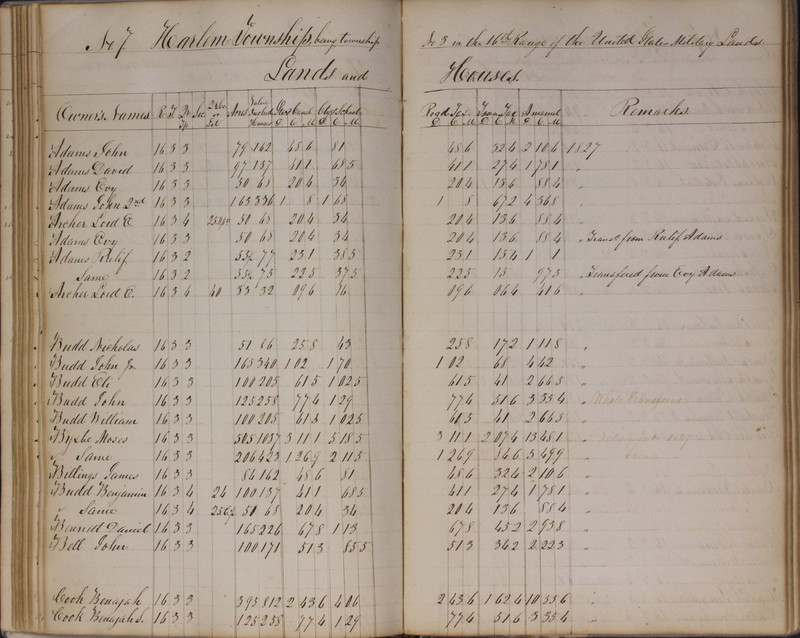 No 7 Harlem Township, being township No 3 in the 16th Range of the United States Military Lands
Lands and Houses.
Owners Names R T Sec Acres Value Houses State Canal School Road Tax Town Tax Amount Remarks
Adams John 16 3 3 79 162 48 6 81 48 6 32 4 2 10 6 1827
Adams David 16 3 3 97 137 41 1 68 5 41 1 27 4 1 78 1 "
Adams Evy 16 3 3 50 68 20 4 34 20 4 13 6 88 4 "
Adams John 2nd 16 3 3 163 336 1 8 1 68 1 8 67 2 4 36 8 "
Archer Lord E 16 3 4 50 68 20 4 34 20 4 13 6 88 4 "
Adams Evy 16 3 3 50 68 20 4 34 20 4 13 6 88 4 " Transd from Ralif Adams
Adams Ralif 16 3 2 77 23 1 38 5 23 1 15 4 1 1
Same 16 3 2 75 22 5 37 5 22 5 15 97 5 " Transfered from Evy Adams
Archer Lord E. 16 3 4 40 33 32 09 6 16 09 6 06 4 41 6 "
Budd Nicholas 16 3 3 51 86 25 8 43 25 8 17 2 1 11 8 "
Budd John Jr 16 3 3 165 340 1 02 1 70 1 02 68 4 42 "
Budd Eli 16 3 3 100 205 61 5 1 02 5 61 5 41 2 66 5 "
Budd John 16 3 3 125 258 77 4 1 29 77 4 51 6 3 35 4 "
Budd William 16 3 3 100 205 61 5 1 02 5 61 5 41 2 66 5 "
Byxbe Moses 16 3 3 505 1037 3 11 1 5 18 5 3 11 1 2 07 4 13 48 1 "
Same 16 3 3 206 423 1 26 9 2 11 5 1 26 9 84 6 5 49 9 "
Billings James 16 3 3 84 162 48 6 81 48 6 32 4 2 10 6 "
Budd Benjamin 16 3 4 24 100 137 41 1 68 5 41 1 27 4 1 78 1 "
Same 16 3 4 50 68 20 4 34 20 4 13 6 88 4 "
Bennett Daniel 16 3 3 165 226 67 8 1 13 67 8 45 2 2 93 8 "
Bell John 16 3 3 100 171 51 3 85 5 51 3 34 2 2 22 3 "
Cook Benajah 16 3 3 395 812 2 43 6 4 06 2 43 6 1 62 4 10 55 6 "
Cook Benajah S. 16 3 3 125 258 77 4 1 29 77 4 51 6 3 35 4 "